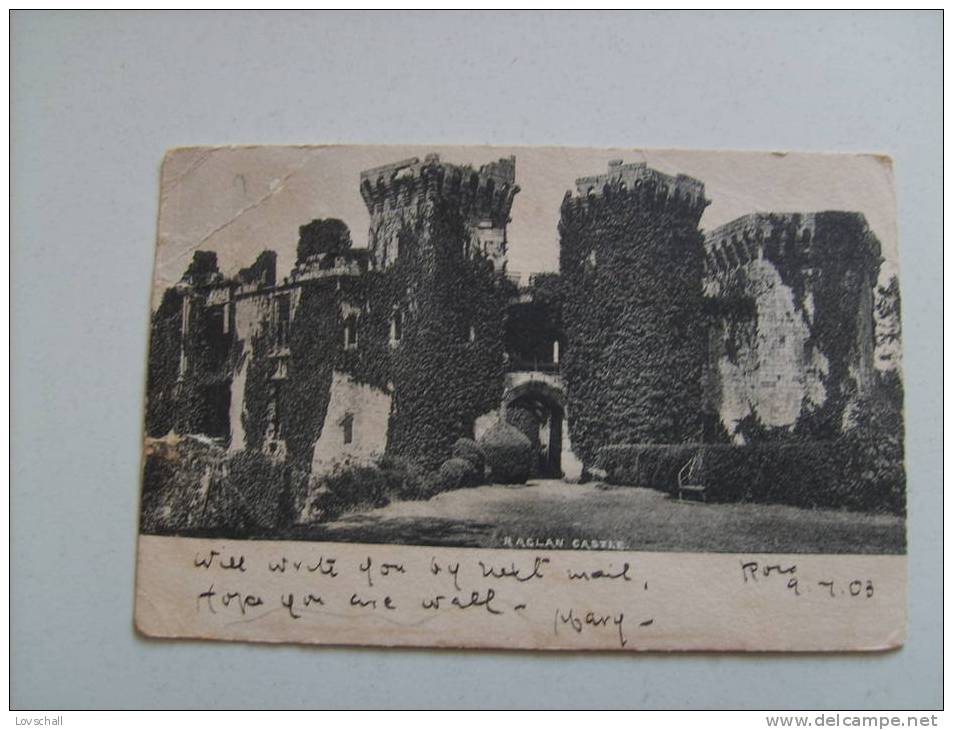 RAGLAN CASTLE.
Will write you by next mail,
Hope you are well -
Mary -
Ross
9.7.03
Lovschall
www.delcampe.net